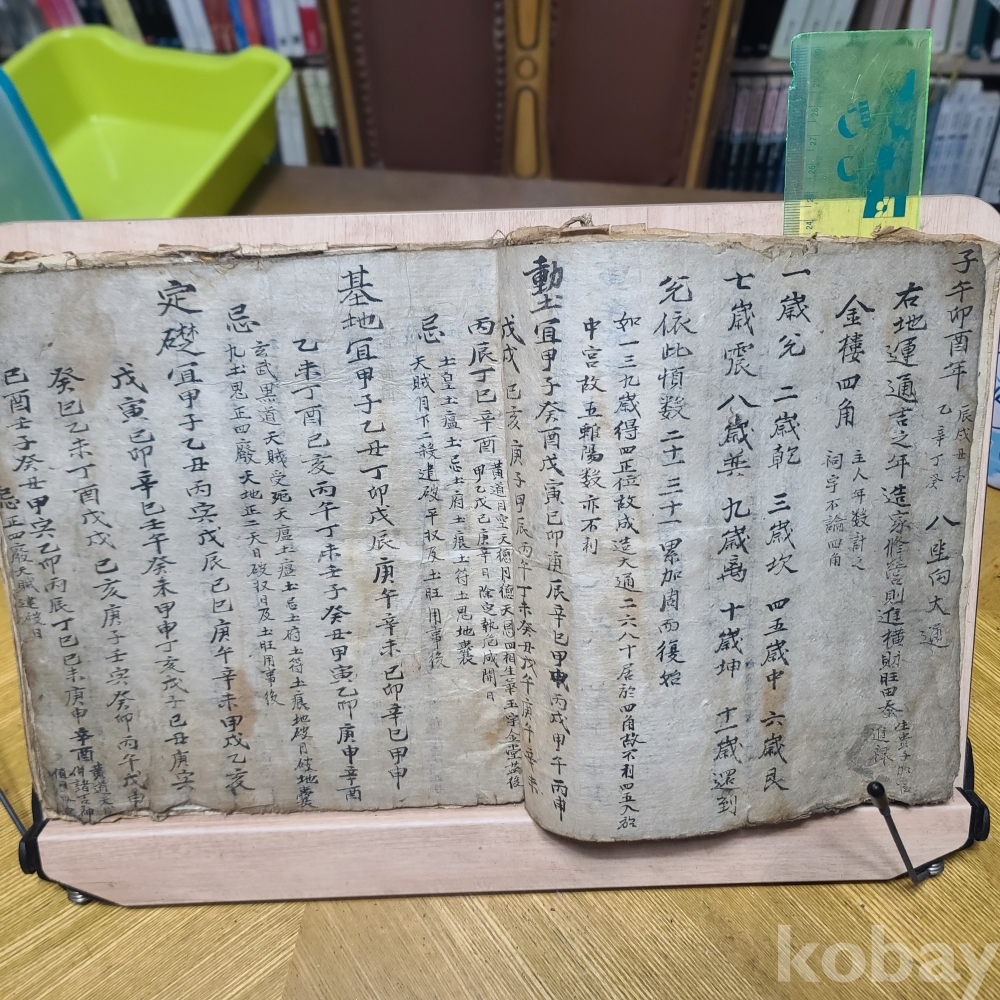 子午卯酉年 辰戌丑未
乙辛丁癸 八坐向大通
右地運通吉之年造家修營則進橫財旺田蚕
進祿
金樓四角 主人年数計之
祠宇不論四角
一歲兌 二歲乾 三歲坎 四五歲中 六歲艮
七歲震 八歲巽 九歲离 十歲坤 十一歲還到
兌依此 数二十一三十一累加周而復始
如一三九歲得四正位故成造大通二六八十居於四角故不利四五入於
中宮故五雖陽数亦不利
動土宜甲子癸酉戊寅己卯庚辰辛巳甲申丙戌甲午丙申
戊戌 己亥 庚子甲辰丙午丁未癸丑戊午庚午辛未
丙辰丁巳辛酉 黃道月空天德月德天恩四相生氣玉宇金堂益後
甲乙戊己庚辛日除定執危成開日
忌 土皇土瘟土忌土府土痕土符土鬼地囊
天賊月下二殺建破平收及土旺用事後
基地宜甲子乙丑丁卯戊辰庚午辛未己卯辛巳甲申
乙未丁酉己亥丙午丁未壬子癸丑甲寅乙卯庚申辛酉
忌 玄武黑道天賊受死天瘟土瘟土忌土府土符土痕地破月破地囊
九土鬼正四廢天地正二天日破收日及土旺用事後
定礎宜甲子乙丑丙寅戊辰己巳庚午辛未甲戌乙亥
戊寅己卯辛巳壬午癸未甲申丁亥戊子己丑庚寅
癸巳乙未丁酉戊戌己亥庚子壬寅癸卯丙午戊申
己酉壬子癸丑甲寅乙卯丙辰丁巳己未庚申辛酉 黃道天
諸吉神
忌正四廢天賊建破日
kobay